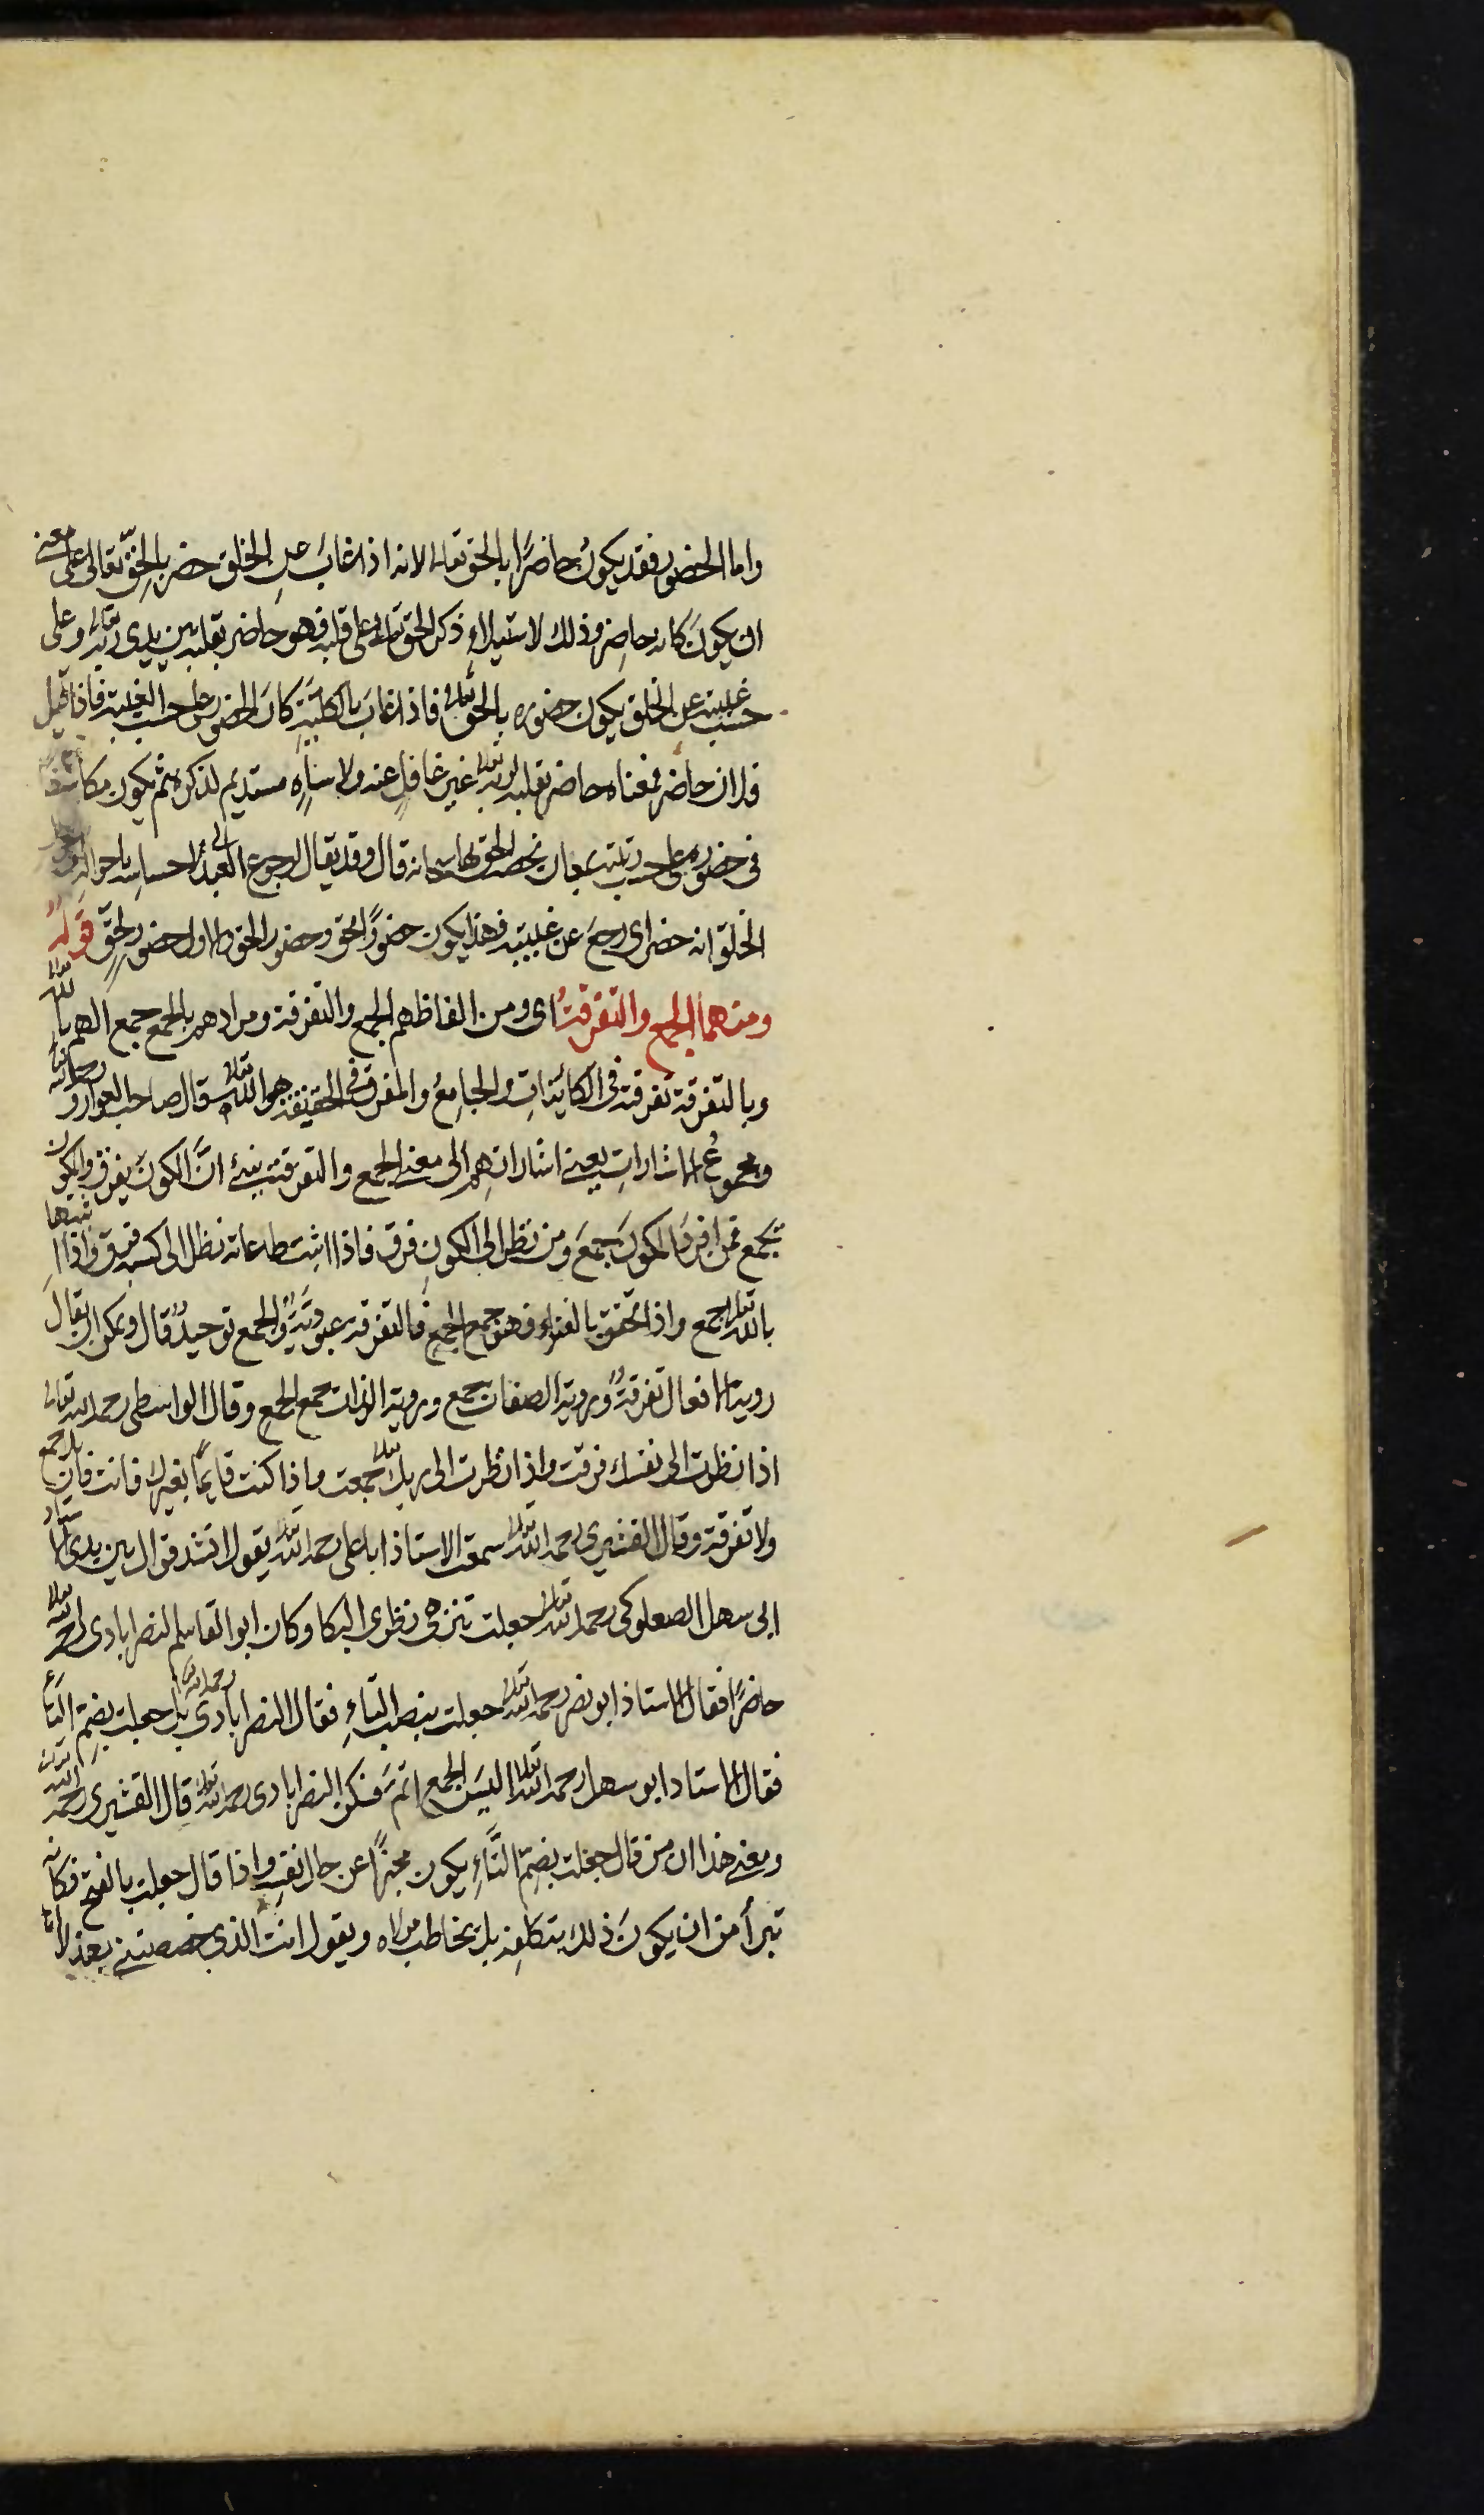 واما الحضور فقد يكون حاضرًا بالحق تعالى لانه اذا غاب عن الخلق حضر بالحق تعالى على معنى
ان يكون كانه حاضر وذلك لاستيلاء ذكر الحق تعالى على قلبه فهو حاضر بقلبه بين يدى ربه تعالى وعلى
حسب غيبته عن الخلق يكون حضوره بالحق تعالى فاذا غاب بالكلية كان الحضور على حسب الغيبة فاذا قيل
فلان حاضر فمعناه حاضر بقلبه لربه تعالى غير غافل عنه ولا ساه مستديم لذكره ثم يكون مكاشفا
فى حضوره على حسب رتبته بمعان يخصه الحق بها سبحانه قال وقد يقال لرجوع العبد الى احساسه باحوال
الخلق انه حضر اى رجع عن غيبته فهذا يكون حضورًا لخق وحضور الحق والاول حضور لحق قوله
ومنهما الجمع والتفرقة اى ومن الفاظهم الجمع والتفرقة ومرادهم بالجمع جمع الهم بالله تعالى
وبالتفرقة تفرقته فى الكائنات والجامع والمفرق فى الحقيقة هو الله تعالى وقال صاحب العوارف رحمه الله
ومجموع الاشارات يعنى اشاراتهم الى معنى الجمع والتفرقة ينبئ ان الكون يفرق والمكون
يجمع فمن افرد المكون جمع ومن نظر الى الكون فرق فاذا اثبت طاعاته نظر الى كسبه فرق واذا اثبتها
بالله تعالى جمع واذا تحقق بالفناء فهو جمع الجمع فالتفرقة عبودية والجمع توحيد قال ويمكن ان يقال
روية الافعال تفرقة وروية الصفات جمع وروية الذات جمع الجمع وقال الواسطى رحمه الله تعالى
اذا نظرت الى نفسك فرقت واذا نظرت الى ربك تعالى جمعت واذا كنت قايمًا بغيرك فانت فان بلا جمع
ولا تفرقة وقال القشيرى رحمه الله تعالى سمعت الاستاذ ابا على رحمه الله تعالى يقول انشد قوال بين يدى الاستاد
ابى سهل الصعلوكى رحمه الله تعالى جعلت تنزهى نظرى اليكا وكان ابو القاسم النصرابادى رحمه الله تعالى
حاضرًا فقال الاستاذ ابو نصر رحمه الله تعالى جعلت بنصب التاء فقال النصرابادى رحمه الله تعالى بل جعلت بضم التاء
فقال الاستاد ابو سهل رحمه الله تعالى اليس الجمع اتم فسكن النصرابادى رحمه الله تعالى قال القشيرى رحمه الله تعالى
ومعنى هذا ان من قال جعلت بضم التاء يكون مخبرًا عن حال نفسه واذا قال جعلت بالفتح فكانه
تبرأ من ان يكون ذلك بتكلفه بل يخاطب مولاه ويقول انت الذى خصصتنى بهذا لا انا